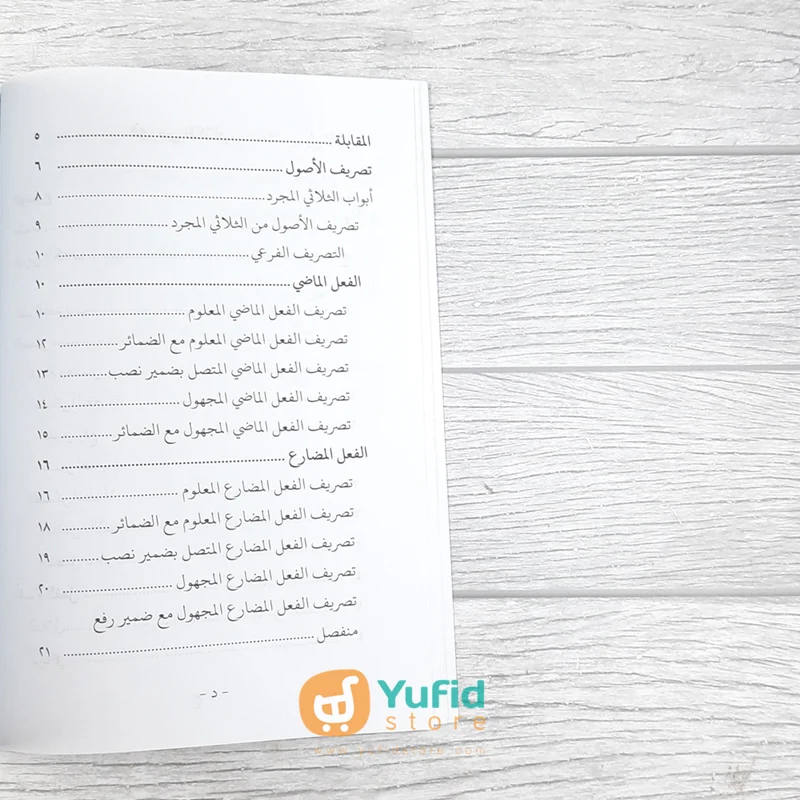 المقابلة ................................ ٥
تصريف الأصول ................................ ٦
أبواب الثلاثي المجرد ................................ ٨
تصريف الأصول من الثلاثي المجرد ................................ ٩
التصريف الفرعي ................................ ١٠
الفعل الماضي ................................ ١٠
تصريف الفعل الماضي المعلوم ................................ ١٠
تصريف الفعل الماضي المعلوم مع الضمائر ............... ١٢
تصريف الفعل الماضي المتصل بضمير نصب ............ ١٣
تصريف الفعل الماضي المجهول ................................ ١٤
تصريف الفعل الماضي المجهول مع الضمائر ............. ١٥
الفعل المضارع ................................ ١٦
تصريف الفعل المضارع المعلوم ................................ ١٦
تصريف الفعل المضارع المعلوم مع الضمائر ............ ١٨
تصريف الفعل المضارع المتصل بضمير نصب .......... ١٩
تصريف الفعل المضارع المجهول ................................ ٢٠
تصريف الفعل المضارع المجهول مع ضمير رفع
منفصل ................................ ٢١
- د -
Yufid
store